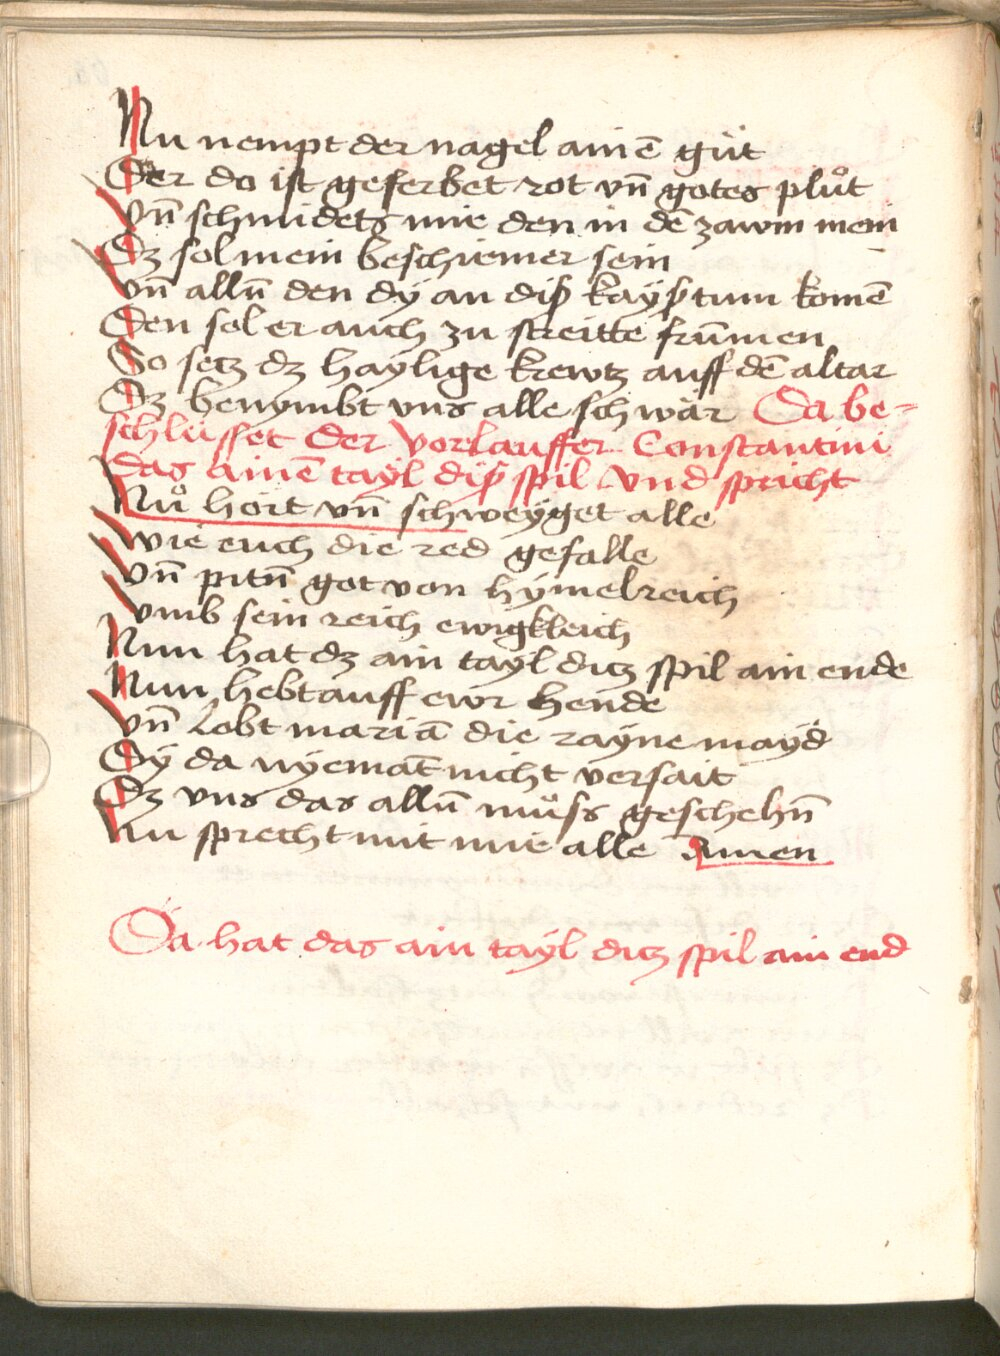 Nu nempt der nagel ainē gůt
Der do ist geferbet rot vn̄ gotes plůt
Vn̄ schmidets mir den in dē zawm mein
Dz sol mein beschiermer sein
Vn̄ alln̄ den dÿ an diß kaÿßtum komē
Den sol er auch zu streitte frūmen
So setz dz haÿlige krewtz auff dē altar
Dz benymbt vns alle schwär Da be-
schlüsset der vorlauffer Constantini
das ainē taÿl diß spil vnd spricht
Nů hört vn̄ schweÿget alle
Wie euch die red gefalle
Vn̄ pitn̄ got von hÿmelreich
Vmb sein reich ewigkleich
Nun hat dz ain taÿl ditz spil ain ende
Nun hebt auff ewr hende
Vn̄ lobt mariā die rayne mayd
Dÿ da nÿemāt nicht versait
Dz vns das alln̄ můss geschehn̄
Nu sprecht mit mir alle Amen
Da hat das ain taÿl ditz spil ain end